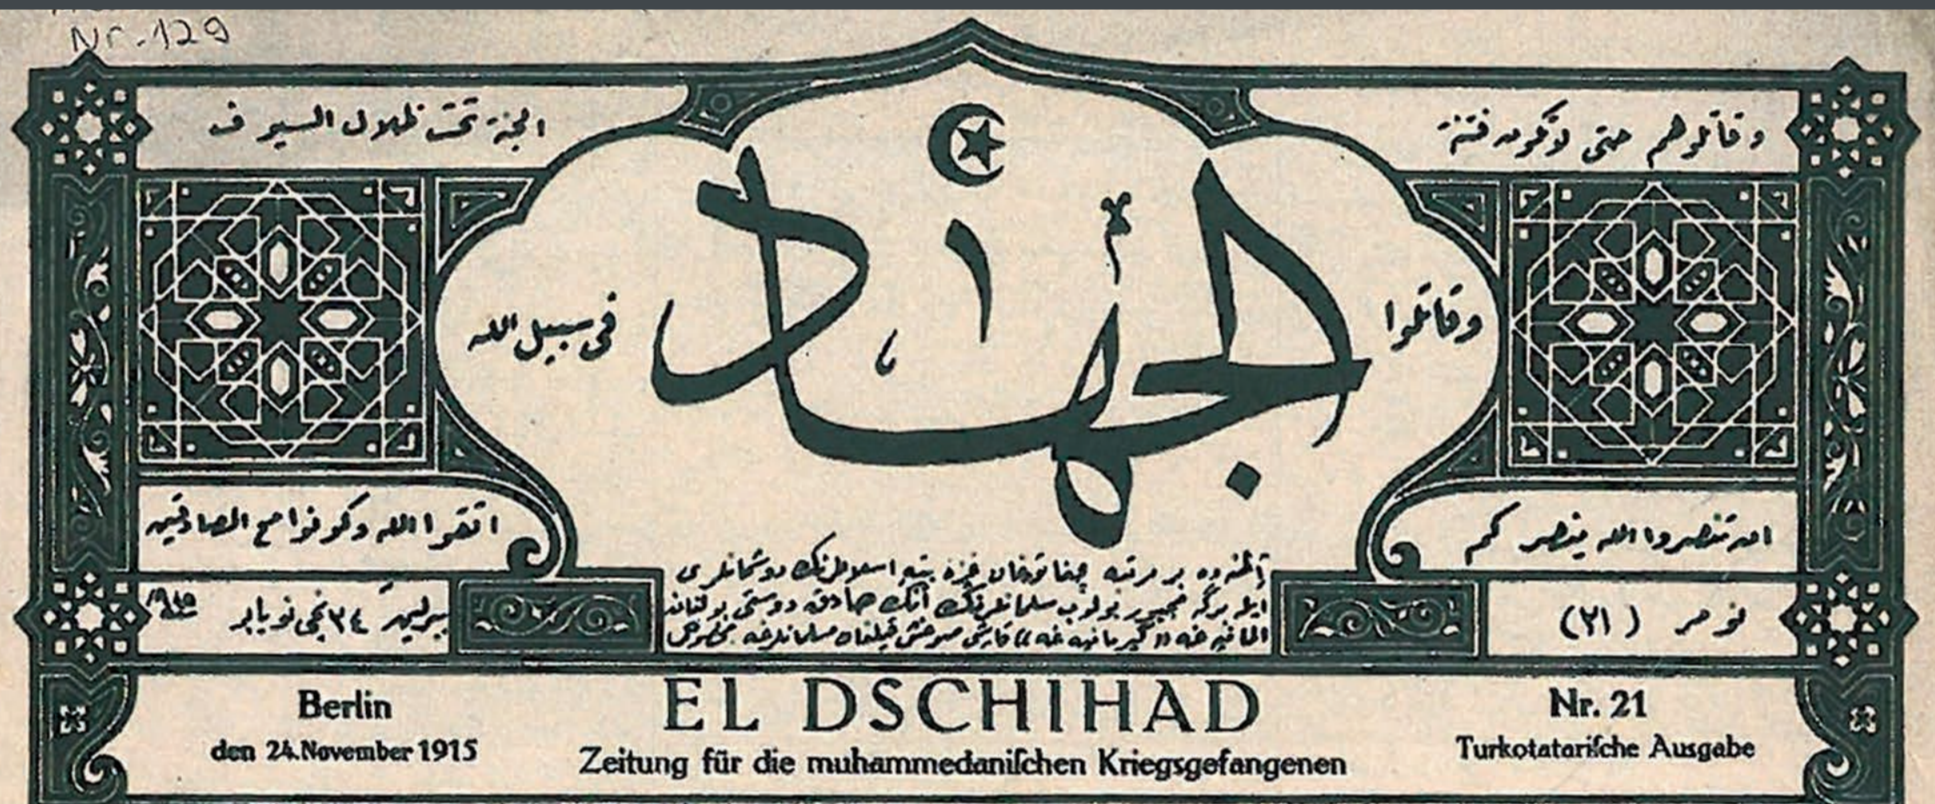 Nr. 129
وقاتلوهم حتى لا تكون فتنة
الجنة تحت ظلال السيوف
الجهاد
وقاتلوا
في سبيل الله
ان تنصروا الله ينصركم
اتقوا الله وكونوا مع الصادقين
نومر (٢١)
برلين ٢٤ نجى نويابر ١٩١٥
EL DSCHIHAD
Berlin
den 24. November 1915
Zeitung für die muhammedaniſchen Kriegsgefangenen
Nr. 21
Turkotatariſche Ausgabe